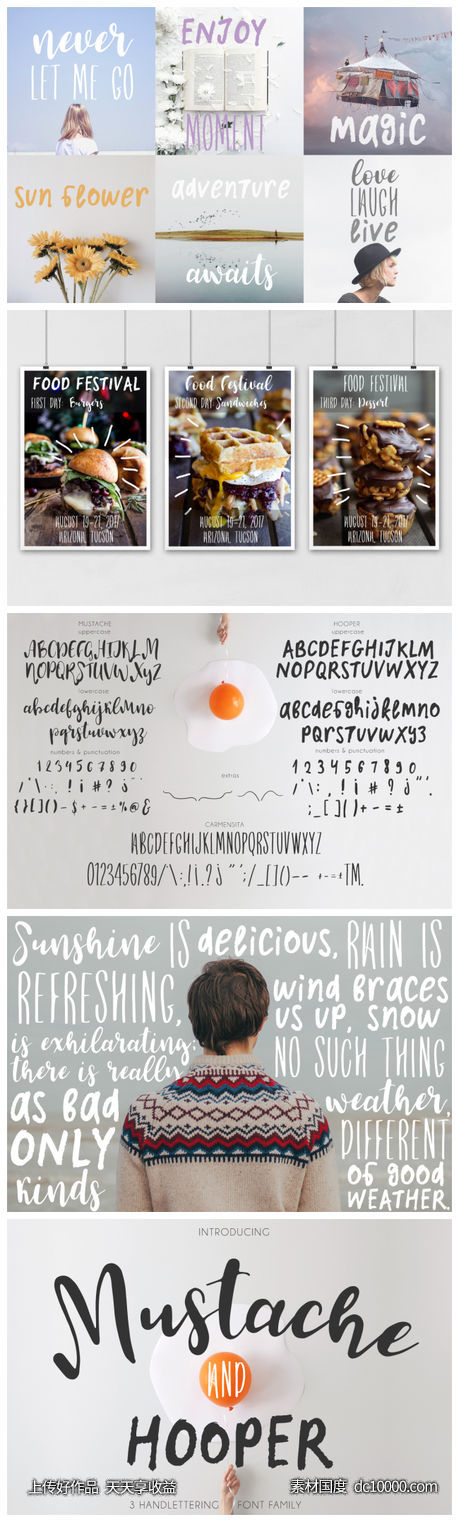 never
LET ME GO
ENJOY
MOMENT
magic
sun flower
adventure
awaits
love
LAUGH
live
FOOD FESTIVAL
FIRST DAY: Burgers
AUGUST 19-21, 2017
ARIZONA, TUCSON
Food Festival
SECOND DAY: Sandwiches
AUGUST 19-21, 2017
ARIZONA, TUCSON
FOOD FESTIVAL
THIRD DAY: Dessert
AUGUST 19-21, 2017
ARIZONA, TUCSON
MUSTACHE
uppercase
ABCDEFGHIJKLM
NOPQRSTUVWXYZ
lowercase
abcdefghijklmno
pqrstuvwxyz
numbers & punctuation
1234567890
HOOPER
uppercase
ABCDEFGHIJKLM
NOPQRSTUVWXYZ
lowercase
abcdefghijklmno
pqrstuvwxyz
numbers & punctuation
1234567890
extras
CARMENSITA
ABCDEFGHIJKLMNOPQRSTUVWXYZ
0123456789/\:,!¡.?j"';/_[]()--+-=±TM.
Sunshine IS delicious, RAIN IS
REFRESHING, wind braces
us up, snow
is exhilarating;
there is really NO SUCH THING
as bad weather,
ONLY DIFFERENT
kinds of good
WEATHER.
INTRODUCING
Mustache
AND
HOOPER
3 HANDLETTERING FONT FAMILY
上传好作品 天天享收益
素材国度 dc10000.com